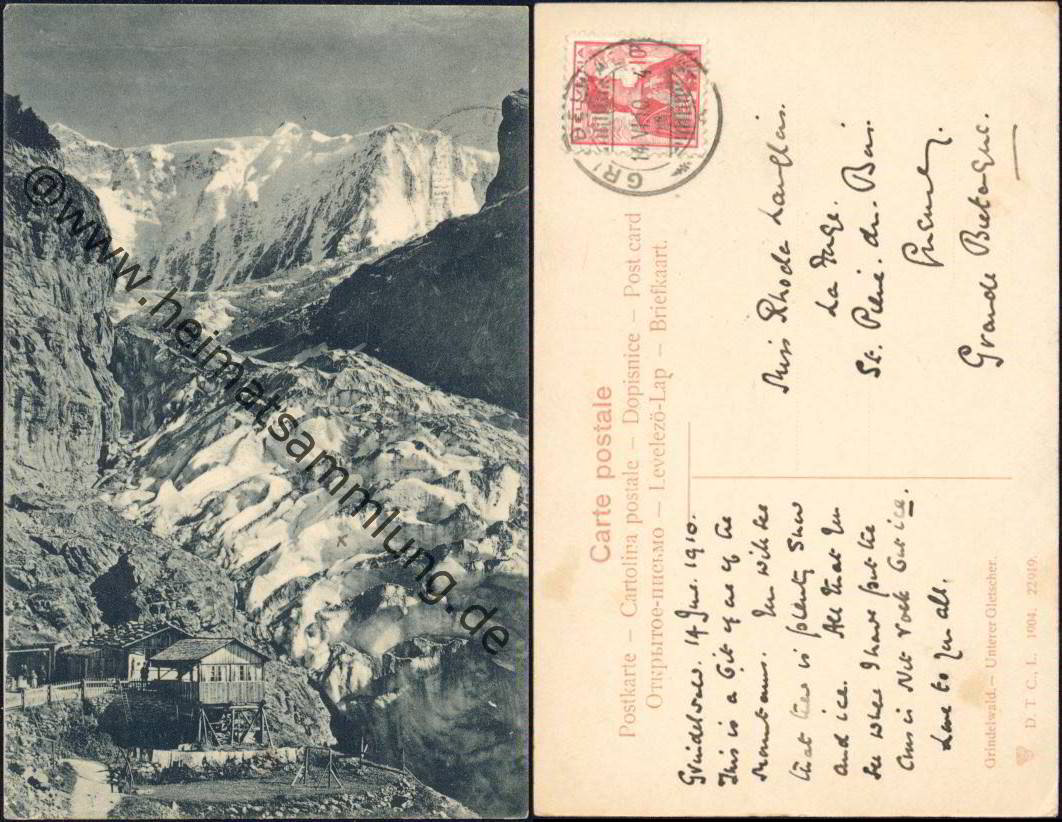 ©www.heimatsammlung.de
HELVETIA
14.VI.10
Carte postale
Postkarte – Cartolina postale – Dopisnice – Post card
Открытое-письмо – Levelező-Lap – Briefkaart.
Miss Rhoda
La
St. Pierre. du. Bois.
Guernsey.
Grande Bretagne.
Grindelwald. 14 June. 1910.
This is a bit of one of the
mountains. You will see
that there is plenty snow
and ice. All that you
see where I have put the
Cross is not rock but ice.
Love to you all.
Grindelwald. – Unterer Gletscher.
D. T. C., L. 1904. 22919.